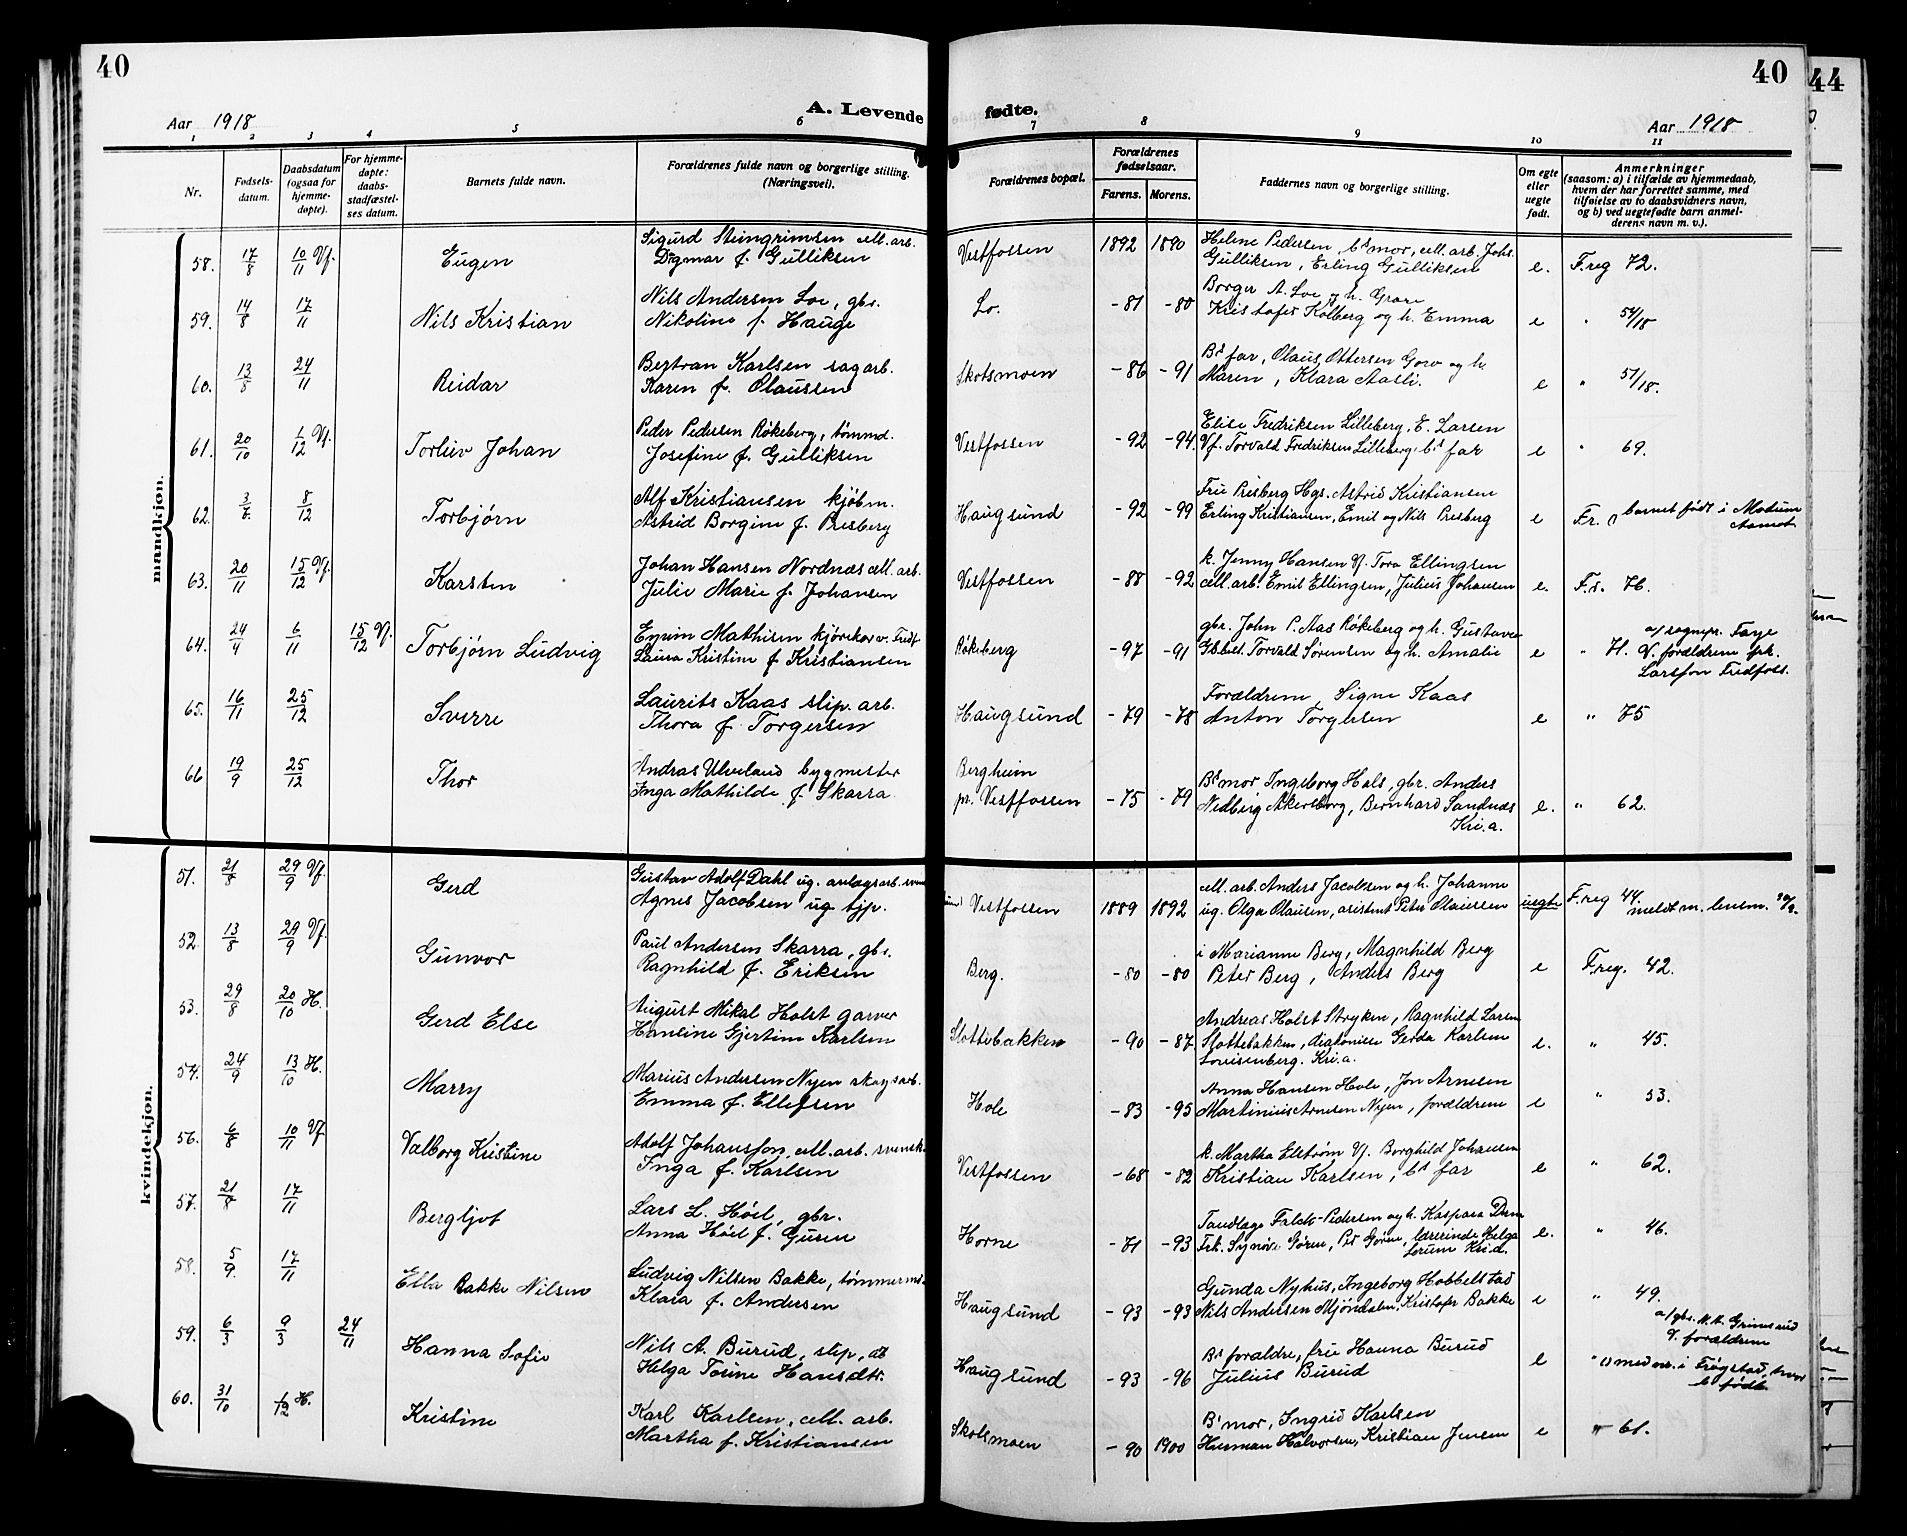 40
40
44
A. Levende fødte.
Aar 1918
Aar 1918
1 2 3 4 5 6 7 8 9 10 11
Nr.
Fødsels-
datum.
Daabsdatum
(ogsaa for
hjemme-
døpte).
For hjemme-
døpte:
daabs-
stadfæstel-
ses datum.
Barnets fulde navn.
Forældrenes fulde navn og borgerlige stilling.
(Næringsvei).
Forældrenes bopæl.
Forældrenes
fødselsaar.
Farens. Morens.
Faddernes navn og borgerlige stilling.
Om egte
eller
uegte
født.
Anmerkninger
(saasom: a) i tilfælde av hjemmedaab,
hvem der har forrettet samme, med
tilføielse av to daabsvidners navn,
og b) ved uegtefødte barn anmel-
derens navn m. v.).
mandkjøn.
58. 17/8 10/11 Vf. Eugen
Sigurd Steingrimsen cell. arb.
Dagmar f. Gulliksen
Vestfossen 1892 1890
Helene Pedersen, bs mor, cell. arb. Johs.
Gulliksen, Erling Gulliksen
e. F.reg 72.
59. 14/8 17/11 Nils Kristian
Nils Andersen Loe, gbr.
Nikoline f. Hauge
Lo. -81 -80
Borger A. Loe og h. Grare
Kristofer Kolberg og h. Emma
e " 54/18
60. 13/5 24/11 Reidar
Bertran Karlsen sagarb.
Karen f. Olaussen
Skotsmoen -86 -91
Bs far, Olaus Ottersen Goro og h.
Maren, Klara Aasli.
e " 51/18.
61. 20/10 1/12 Vf. Torleiv Johan
Peder Pedersen Røkeberg, tømmd.
Josefine f. Gulliksen
Vestfossen -92 -94.
Elise Fredriksen Lilleberg, E. Larsen
Vf. Torvald Fredriksen Lilleberg, bs far
e " 69.
62. 3/6 8/12 Torbjørn
Alf Kristiansen kjøbm.
Astrid Borgine f. Presberg
Haugsund -92 -99
Fru Presberg Hgs. Astrid Kristiansen
Erling Kristiansen, Emil og Nils Presberg
e F.r. () barnet født i Modum
Aamot
63. 20/11 15/12 Vf. Karsten
Johan Hansen Nordnæs cell. arb.
Julie Marie f. Johansen
Vestfossen -88 -92
k. Jenny Hansen Vf. Tora Ellingsen
cell. arb. Emil Ellingsen, Julius Johansen
e. F.r. 76.
64. 24/4 6/11 15/12 Vf. Torbjørn Ludvig
Eyvin Mathisen kjørekar v. Fredf.
Laura Kristine f Kristiansen
Røkeberg -97 -91
gbr. John P. Aas Røkeberg og h. Gustava
Torvald Sørensen og h. Amalie
e " 71. a/ sognepr. Faye
V. forældrene frk.
Larsson Fredfoss.
65. 16/11 25/12 Sverre
Laurits Kaas slip. arb.
Thora f. Torgersen
Haugsund -79 -78
Forældrene, Signe Kaas
Anton Torgersen
e " 75
66 19/9 25/12 Thor
Andras Ulveland bygmester
Inga Mathilde f. Skarra
Bergheim
pr. Vestfossen -75 -79
Bs mor, Ingeborg Hals, gbr. Anders
Nedberg Akersborg, Bernhard Sandnæs
Kri.a.
e. " 62.
kvindekjøn.
51. 21/8 29/9 Vf. Gerd
Gustav Adolf Dahl ug. anlægsarb.
Agnes Jacobsen ug tjp.
Vestfossen 1889 1892
cell. arb. Anders Jacobsen og h. Johanne
ug. Olga Olausen, asistent Peter Olaussen
uegte F.reg 44.
meldt m. lensm.
52. 13/8 29/9 Vf. Gunvor
Paul Andersen Skarra, gbr.
Ragnhild f. Eriksen
Berg. -80 -80
i Marianne Berg, Magnhild Berg
Peter Berg, Anders Berg
e F.reg. 42.
53. 29/8 20/10 H. Gerd Else
August Mikal Holst garver
Hansine Gjertine Karlsen
Slottebakken -90 -87
Andreas Holst Stryken, Ragnhild Larsen
Slottebakken, diakonisse Gerda Karlsen
Lovisenberg. Kri.a.
e. " 45.
54. 24/9 13/10 H. Marry
Marius Andersen Nyen skogsarb.
Emma f. Ellefsen
Hole -83 -95
Anna Hansen Hole, Jon Arnesen
Martinius Arnesen Nyen, forældrene
e " 53.
56. 6/8 10/11 Vf Valborg Kristine
Adolf Johansson, cell. arb. svensk.
Inga f. Karlsen
Vestfossen -68 -82
k. Martha Elstrøm Vf. Borghild Johansen
Kristian Karlsen, bs far
e " 62.
57. 21/8 17/11 Bergljot
Lars L. Høil, gbr.
Anna Høil f. Guren
Horne -71 -93
Tandlæge Falck-Pedersen og h. Kaspara
Frk. Synøve Gøren, Per Gøren, lærerinde Helga
Sorum Krid.
e. " 46.
58. 5/9. 17/11 Ella Bakke Nilsen
Ludvig Nilsen Bakke, tømmermd.
Klara f. Andersen
Haugsund -93 -93
Gunda Nyhus, Ingeborg Hobbelstad
Nils Andersen Mjøndalen, Kristofer Bakke
e " 49.
59. 6/3 9/3 24/11 Hanna Sofie
Nils A. Burud, slip, at
Helga Torine Hansdtr.
Haugsund -93 -96
Bs foraldre, fru Hanna Burud
Julius Burud
e a/ gbr. N.A. Grimsrud
V. forældrene
" () med nr. i Trøgstad, hvor
b født.
60. 31/10 1/12 H. Kristine
Karl Karlsen, cell. arb.
Martha f. Kristiansen
Skotsmoen -90 1900
Bs mor, Ingrid Karlsen
Herman Halvorsen, Kristian Jensen
e " 61.